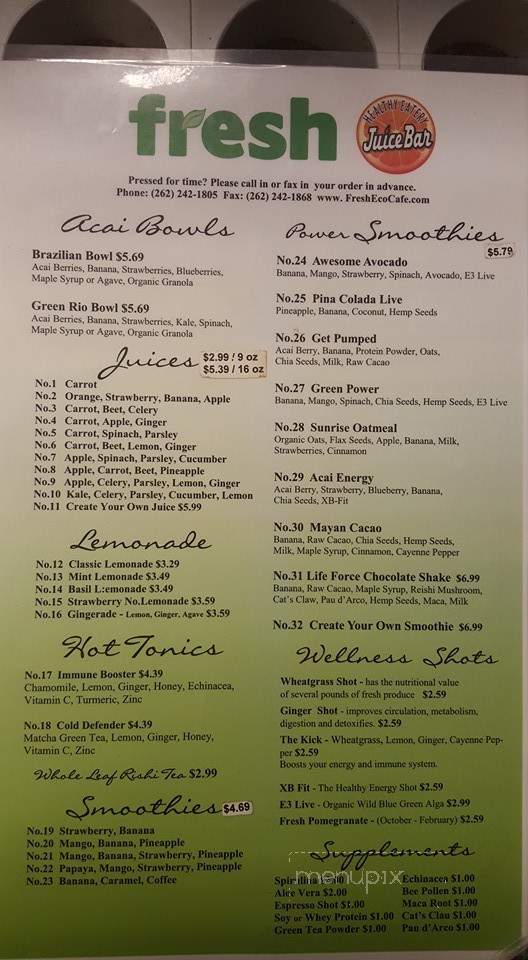 fresh
HEALTHY EATERY
Juice Bar
Pressed for time? Please call in or fax in your order in advance.
Phone: (262) 242-1805 Fax: (262) 242-1868 www. FreshEcoCafe.com
Acai Bowls
Brazilian Bowl $5.69
Acai Berries, Banana, Strawberries, Blueberries,
Maple Syrup or Agave, Organic Granola
Green Rio Bowl $5.69
Acai Berries, Banana, Strawberries, Kale, Spinach,
Maple Syrup or Agave, Organic Granola
Juices
$2.99 / 9 oz
$5.39 / 16 oz
No.1 Carrot
No.2 Orange, Strawberry, Banana, Apple
No.3 Carrot, Beet, Celery
No.4 Carrot, Apple, Ginger
No.5 Carrot, Spinach, Parsley
No.6 Carrot, Beet, Lemon, Ginger
No.7 Apple, Spinach, Parsley, Cucumber
No.8 Apple, Carrot, Beet, Pineapple
No.9 Apple, Celery, Parsley, Lemon, Ginger
No.10 Kale, Celery, Parsley, Cucumber, Lemon
No.11 Create Your Own Juice $5.99
Lemonade
No.12 Classic Lemonade $3.29
No.13 Mint Lemonade $3.49
No.14 Basil L:emonade $3.49
No.15 Strawberry No.Lemonade $3.59
No.16 Gingerade - Lemon, Ginger, Agave $3.59
Hot Tonics
No.17 Immune Booster $4.39
Chamomile, Lemon, Ginger, Honey, Echinacea,
Vitamin C, Turmeric, Zinc
No.18 Cold Defender $4.39
Matcha Green Tea, Lemon, Ginger, Honey,
Vitamin C, Zinc
Whole Leaf Rishi Tea $2.99
Smoothies $4.69
No.19 Strawberry, Banana
No.20 Mango, Banana, Pineapple
No.21 Mango, Banana, Strawberry, Pineapple
No.22 Papaya, Mango, Strawberry, Pineapple
No.23 Banana, Caramel, Coffee
Power Smoothies
$5.79
No.24 Awesome Avocado
Banana, Mango, Strawberry, Spinach, Avocado, E3 Live
No.25 Pina Colada Live
Pineapple, Banana, Coconut, Hemp Seeds
No.26 Get Pumped
Acai Berry, Banana, Protein Powder, Oats,
Chia Seeds, Milk, Raw Cacao
No.27 Green Power
Banana, Mango, Spinach, Chia Seeds, Hemp Seeds, E3 Live
No.28 Sunrise Oatmeal
Organic Oats, Flax Seeds, Apple, Banana, Milk,
Strawberries, Cinnamon
No.29 Acai Energy
Acai Berry, Strawberry, Blueberry, Banana,
Chia Seeds, XB-Fit
No.30 Mayan Cacao
Banana, Raw Cacao, Chia Seeds, Hemp Seeds,
Milk, Maple Syrup, Cinnamon, Cayenne Pepper
No.31 Life Force Chocolate Shake $6.99
Banana, Raw Cacao, Maple Syrup, Reishi Mushroom,
Cat's Claw, Pau d'Arco, Hemp Seeds, Maca, Milk
No.32 Create Your Own Smoothie $6.99
Wellness Shots
Wheatgrass Shot - has the nutritional value
of several pounds of fresh produce $2.59
Ginger Shot - improves circulation, metabolism,
digestion and detoxifies. $2.59
The Kick - Wheatgrass, Lemon, Ginger, Cayenne Pep-
per $2.59
Boosts your energy and immune system.
XB Fit - The Healthy Energy Shot $2.59
E3 Live - Organic Wild Blue Green Alga $2.99
Fresh Pomegranate - (October - February) $2.59
Supplements
Spirulina Echinacea $1.00
Aloe Vera $2.00 Bee Pollen $1.00
Espresso Shot $1.00 Maca Root $1.00
Soy or Whey Protein $1.00 Cat's Clau $1.00
Green Tea Powder $1.00 Pau d'Arco $1.00
menupix